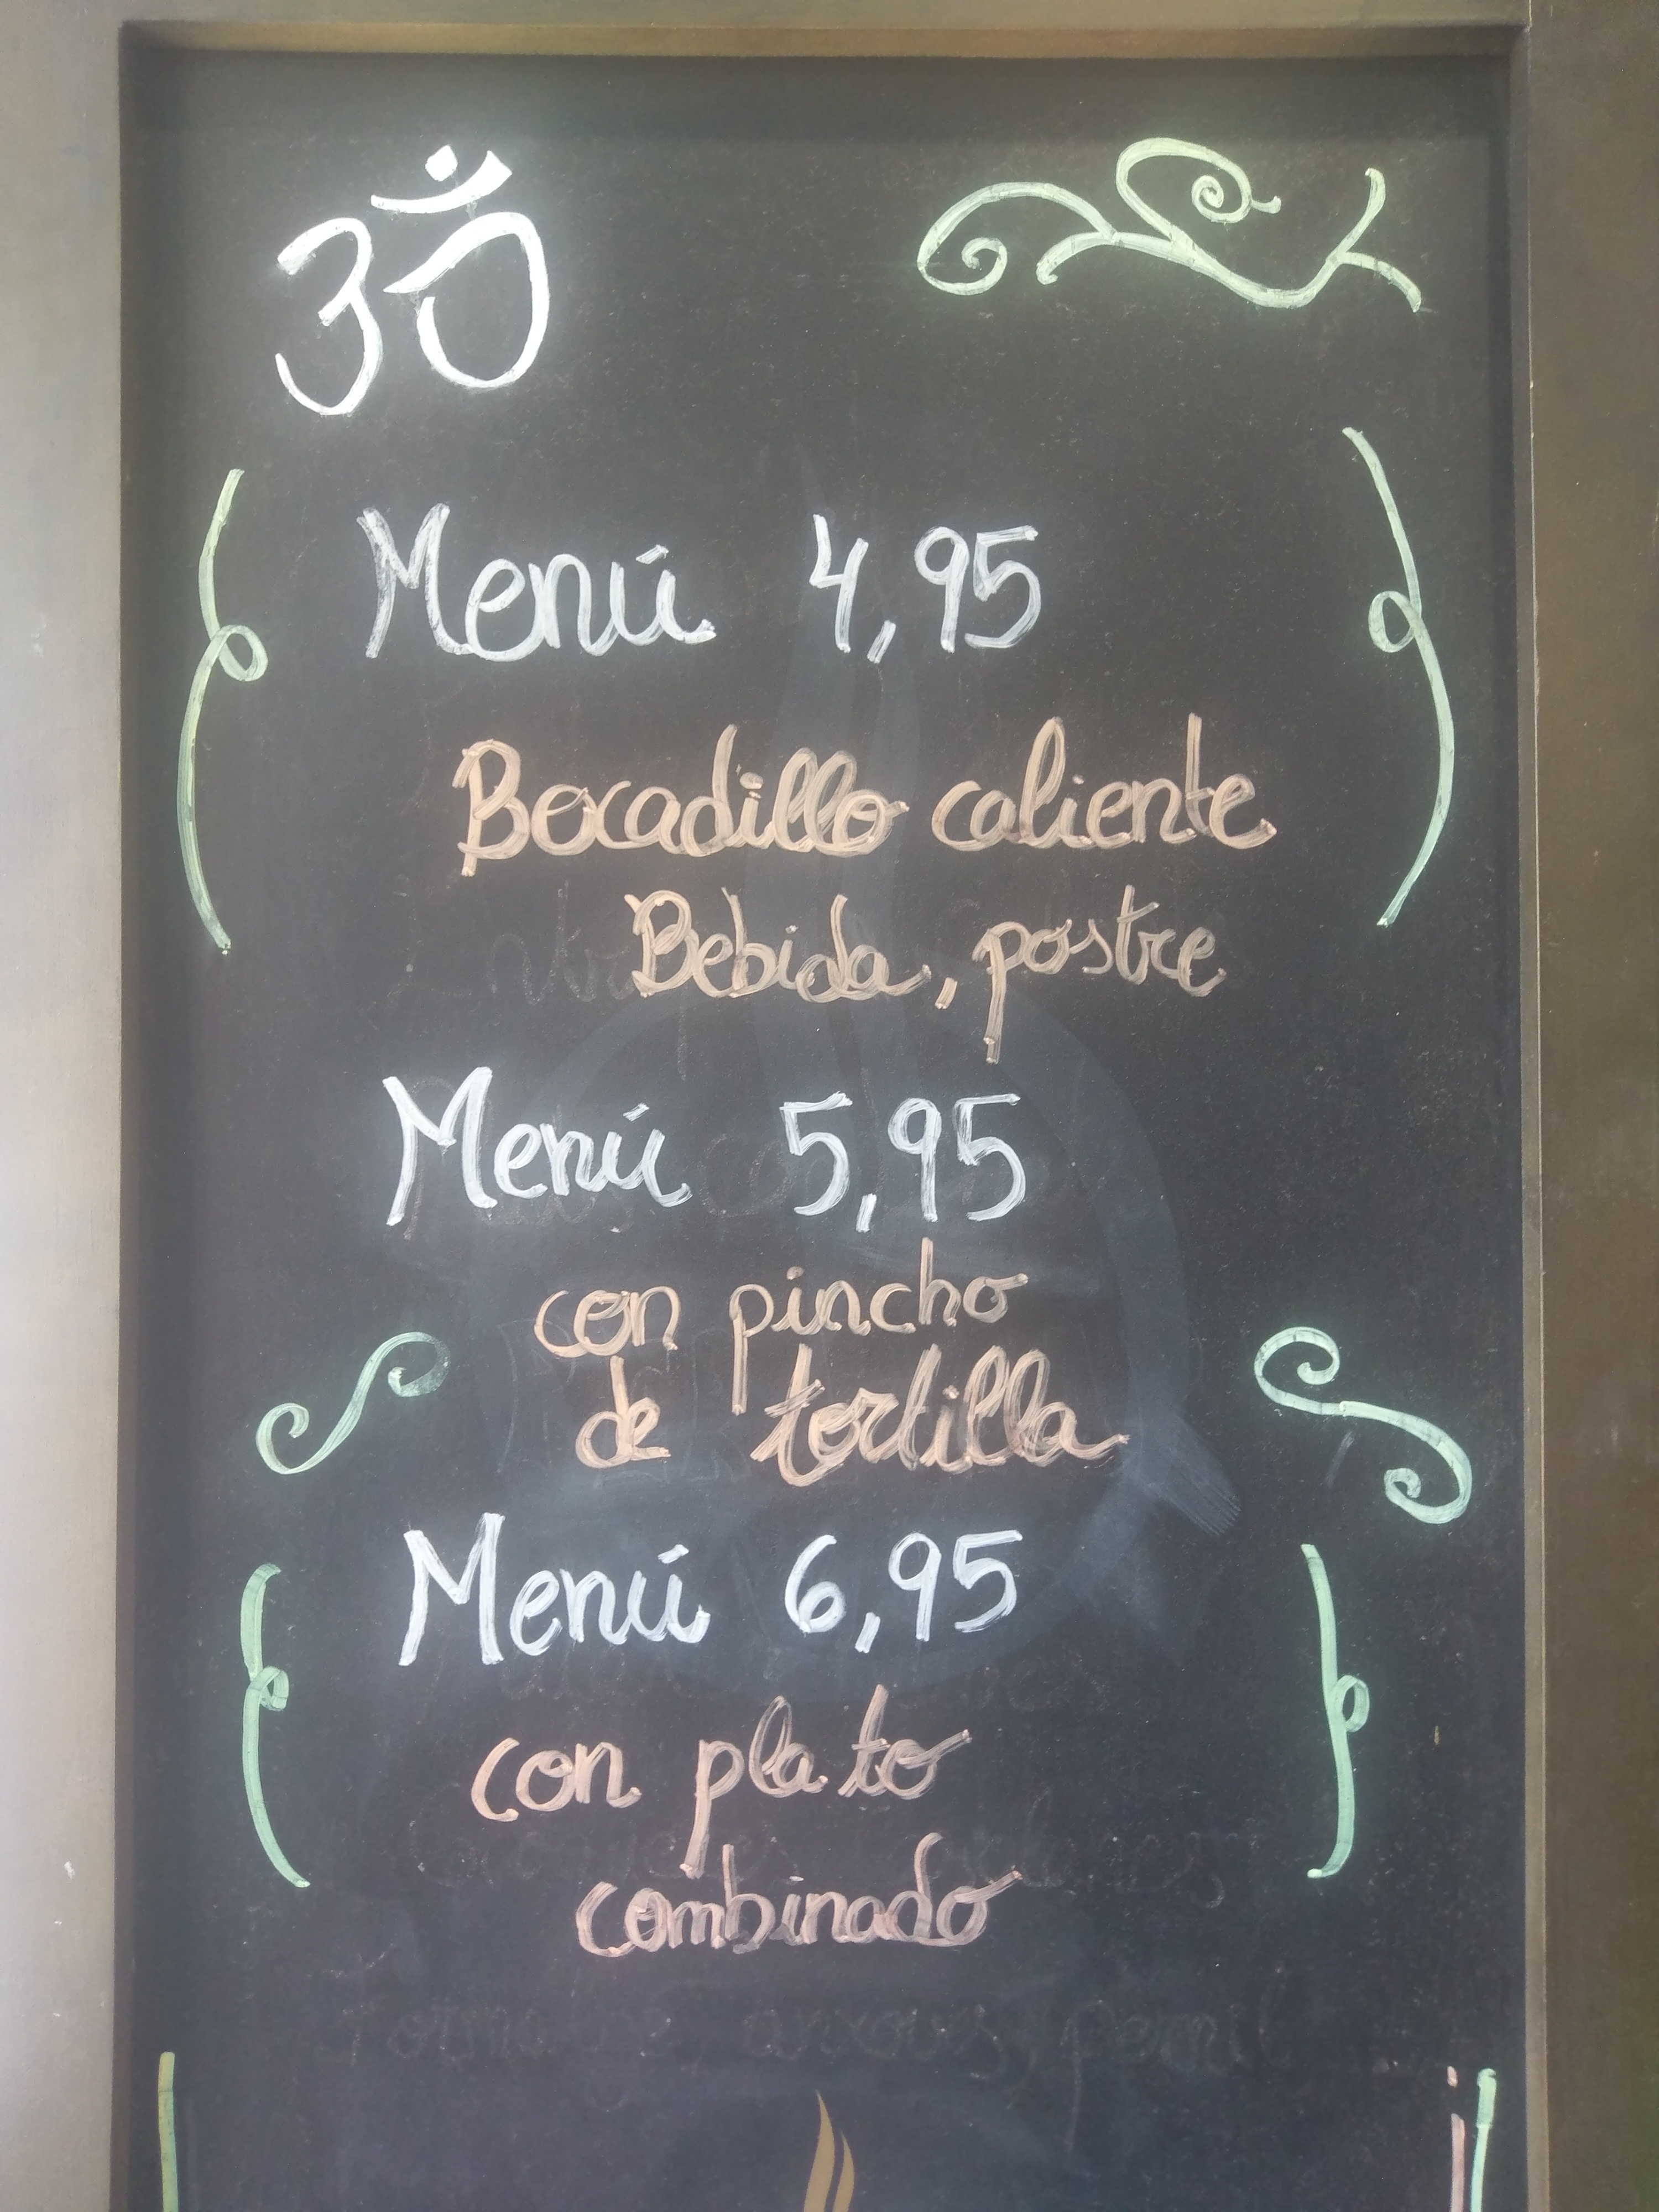 ॐ
Menú 4,95
Bocadillo caliente
Bebida, postre
Menú 5,95
con pincho
de tortilla
Menú 6,95
con plato
combinado